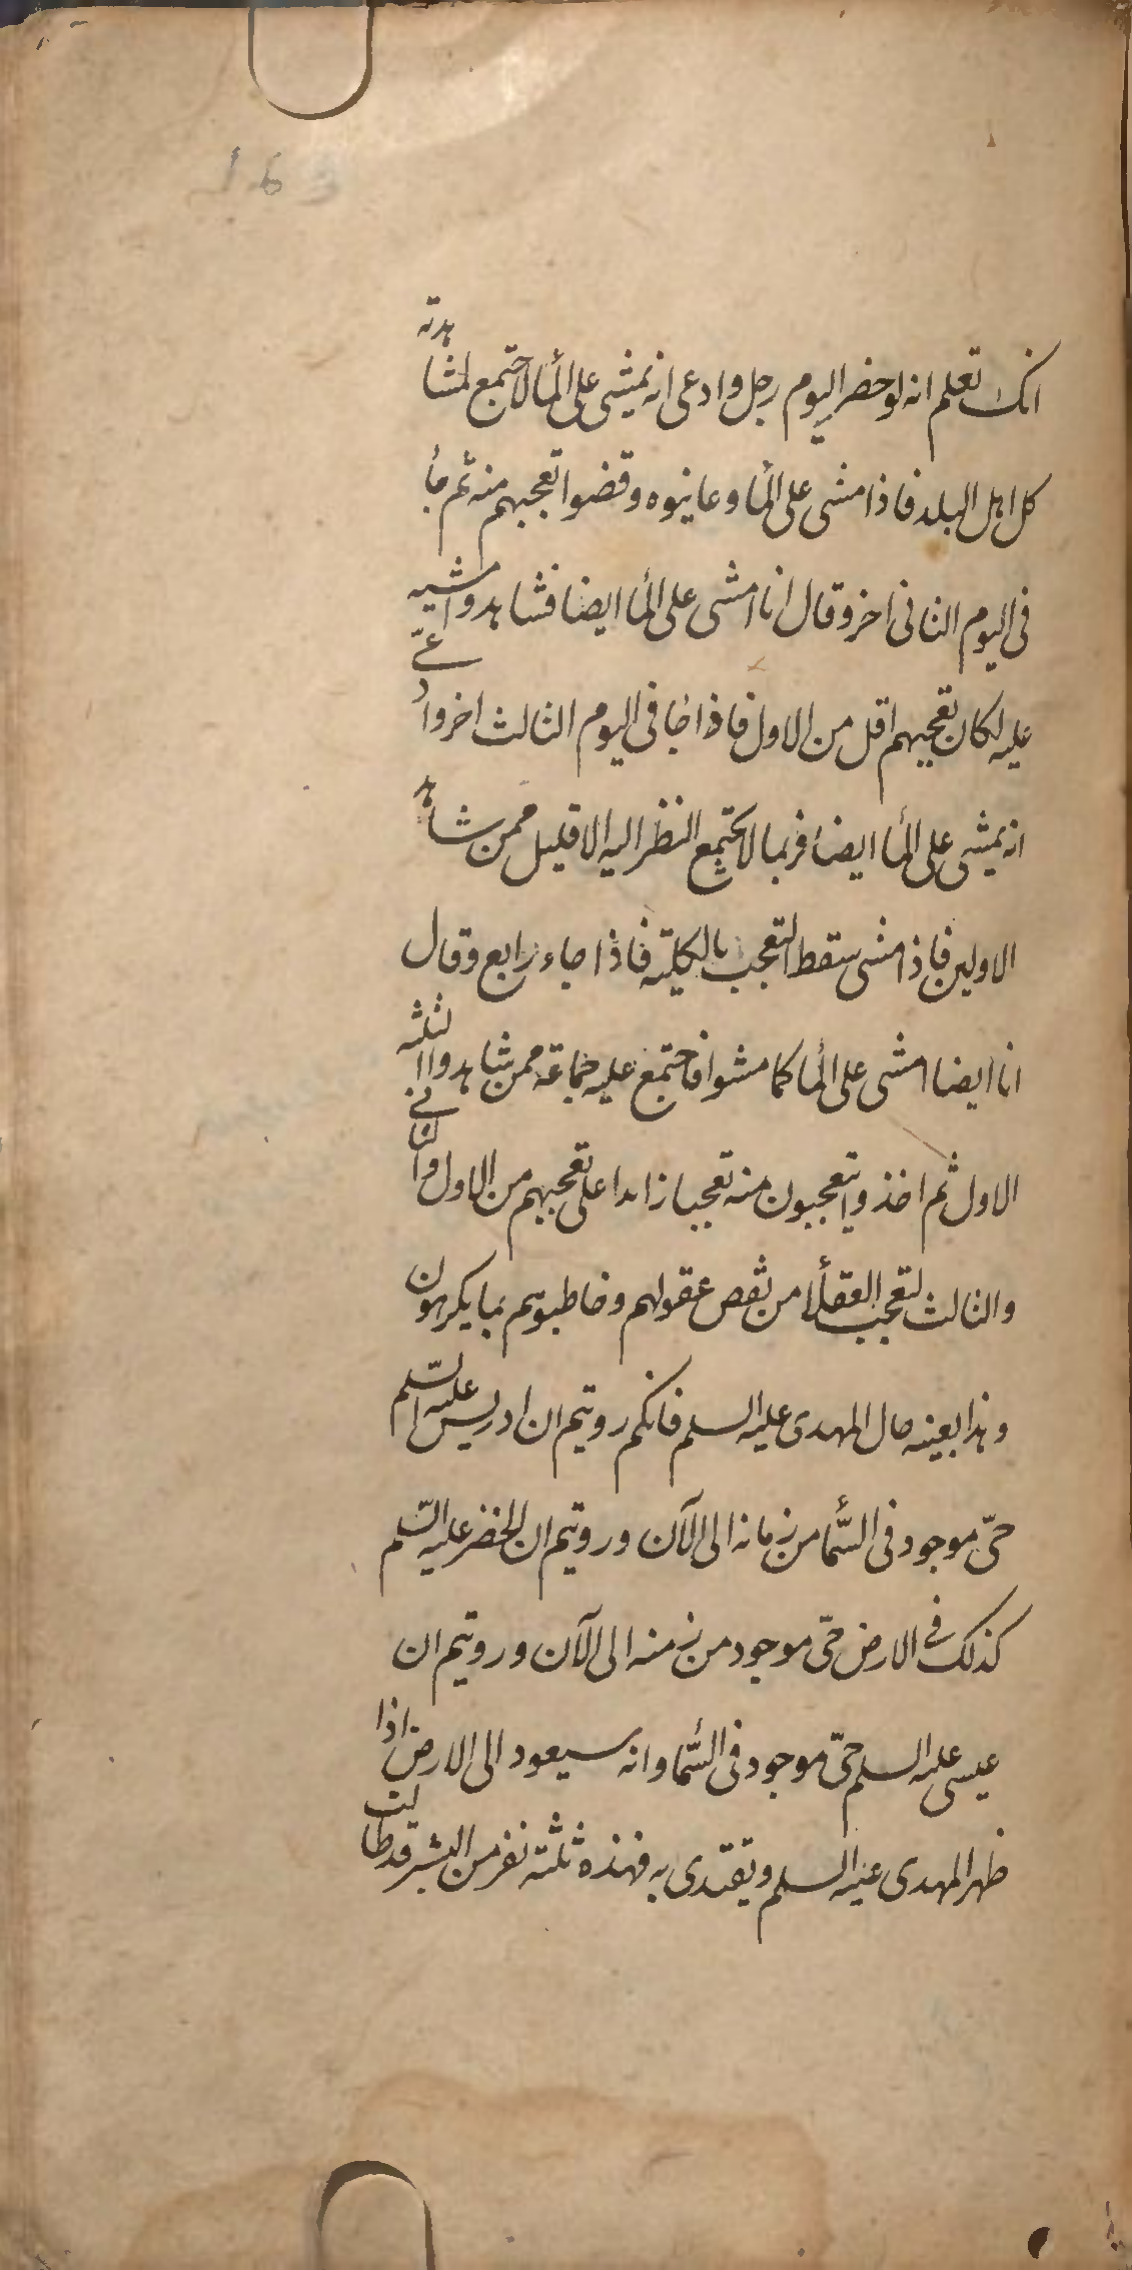 انك تعلم انه لو حضر اليوم رجل وادعى انه يمشى على المأ لاجتمع لمشاهدته
كل اهل البلد فاذا مشى على المأ وعاينوه وقضوا تعجبهم منه ثم جأ
فى اليوم الثانى اخر وقال انا امشى على المأ ايضا فشاهدوا مشيه
عليه لكان تعجبهم اقل من الاول فاذا جا فى اليوم الثالث اخر وادعى
انه يمشى على المأ ايضا فربما لا يجتمع للنظر اليه الا قليل ممن شاهد
الاولين فاذا مشى سقط التعجب بالكلية فاذا جاء رابع وقال
انا ايضا امشى على المأ كما مشوا فاجتمع عليه جماعة ممن شاهدوا الثلثه
الاول ثم اخذوا يتعجبون منه تعجبا زايدا على تعجبهم من الاول والثانى
والثالث لتعجب العقلأ من نقص عقولهم وخاطبوهم بما يكرهون
وهذا بعينه حال المهدى عليه السلم فانكم رويتم ان ادريس عليه السّلم
حىّ موجود فى السّمأ من زمانه الى الآن ورويتم ان الخضر عليه السّلم
كذلك فى الارض حىّ موجود من زمنه الى الآن ورويتم ان
عيسى عليه السلم حىّ موجود فى السّمأ وانه سيعود الى الارض اذا
ظهر المهدى عليه السلم ويقتدى به فهذه ثلثة نفر من البشر قد طالت